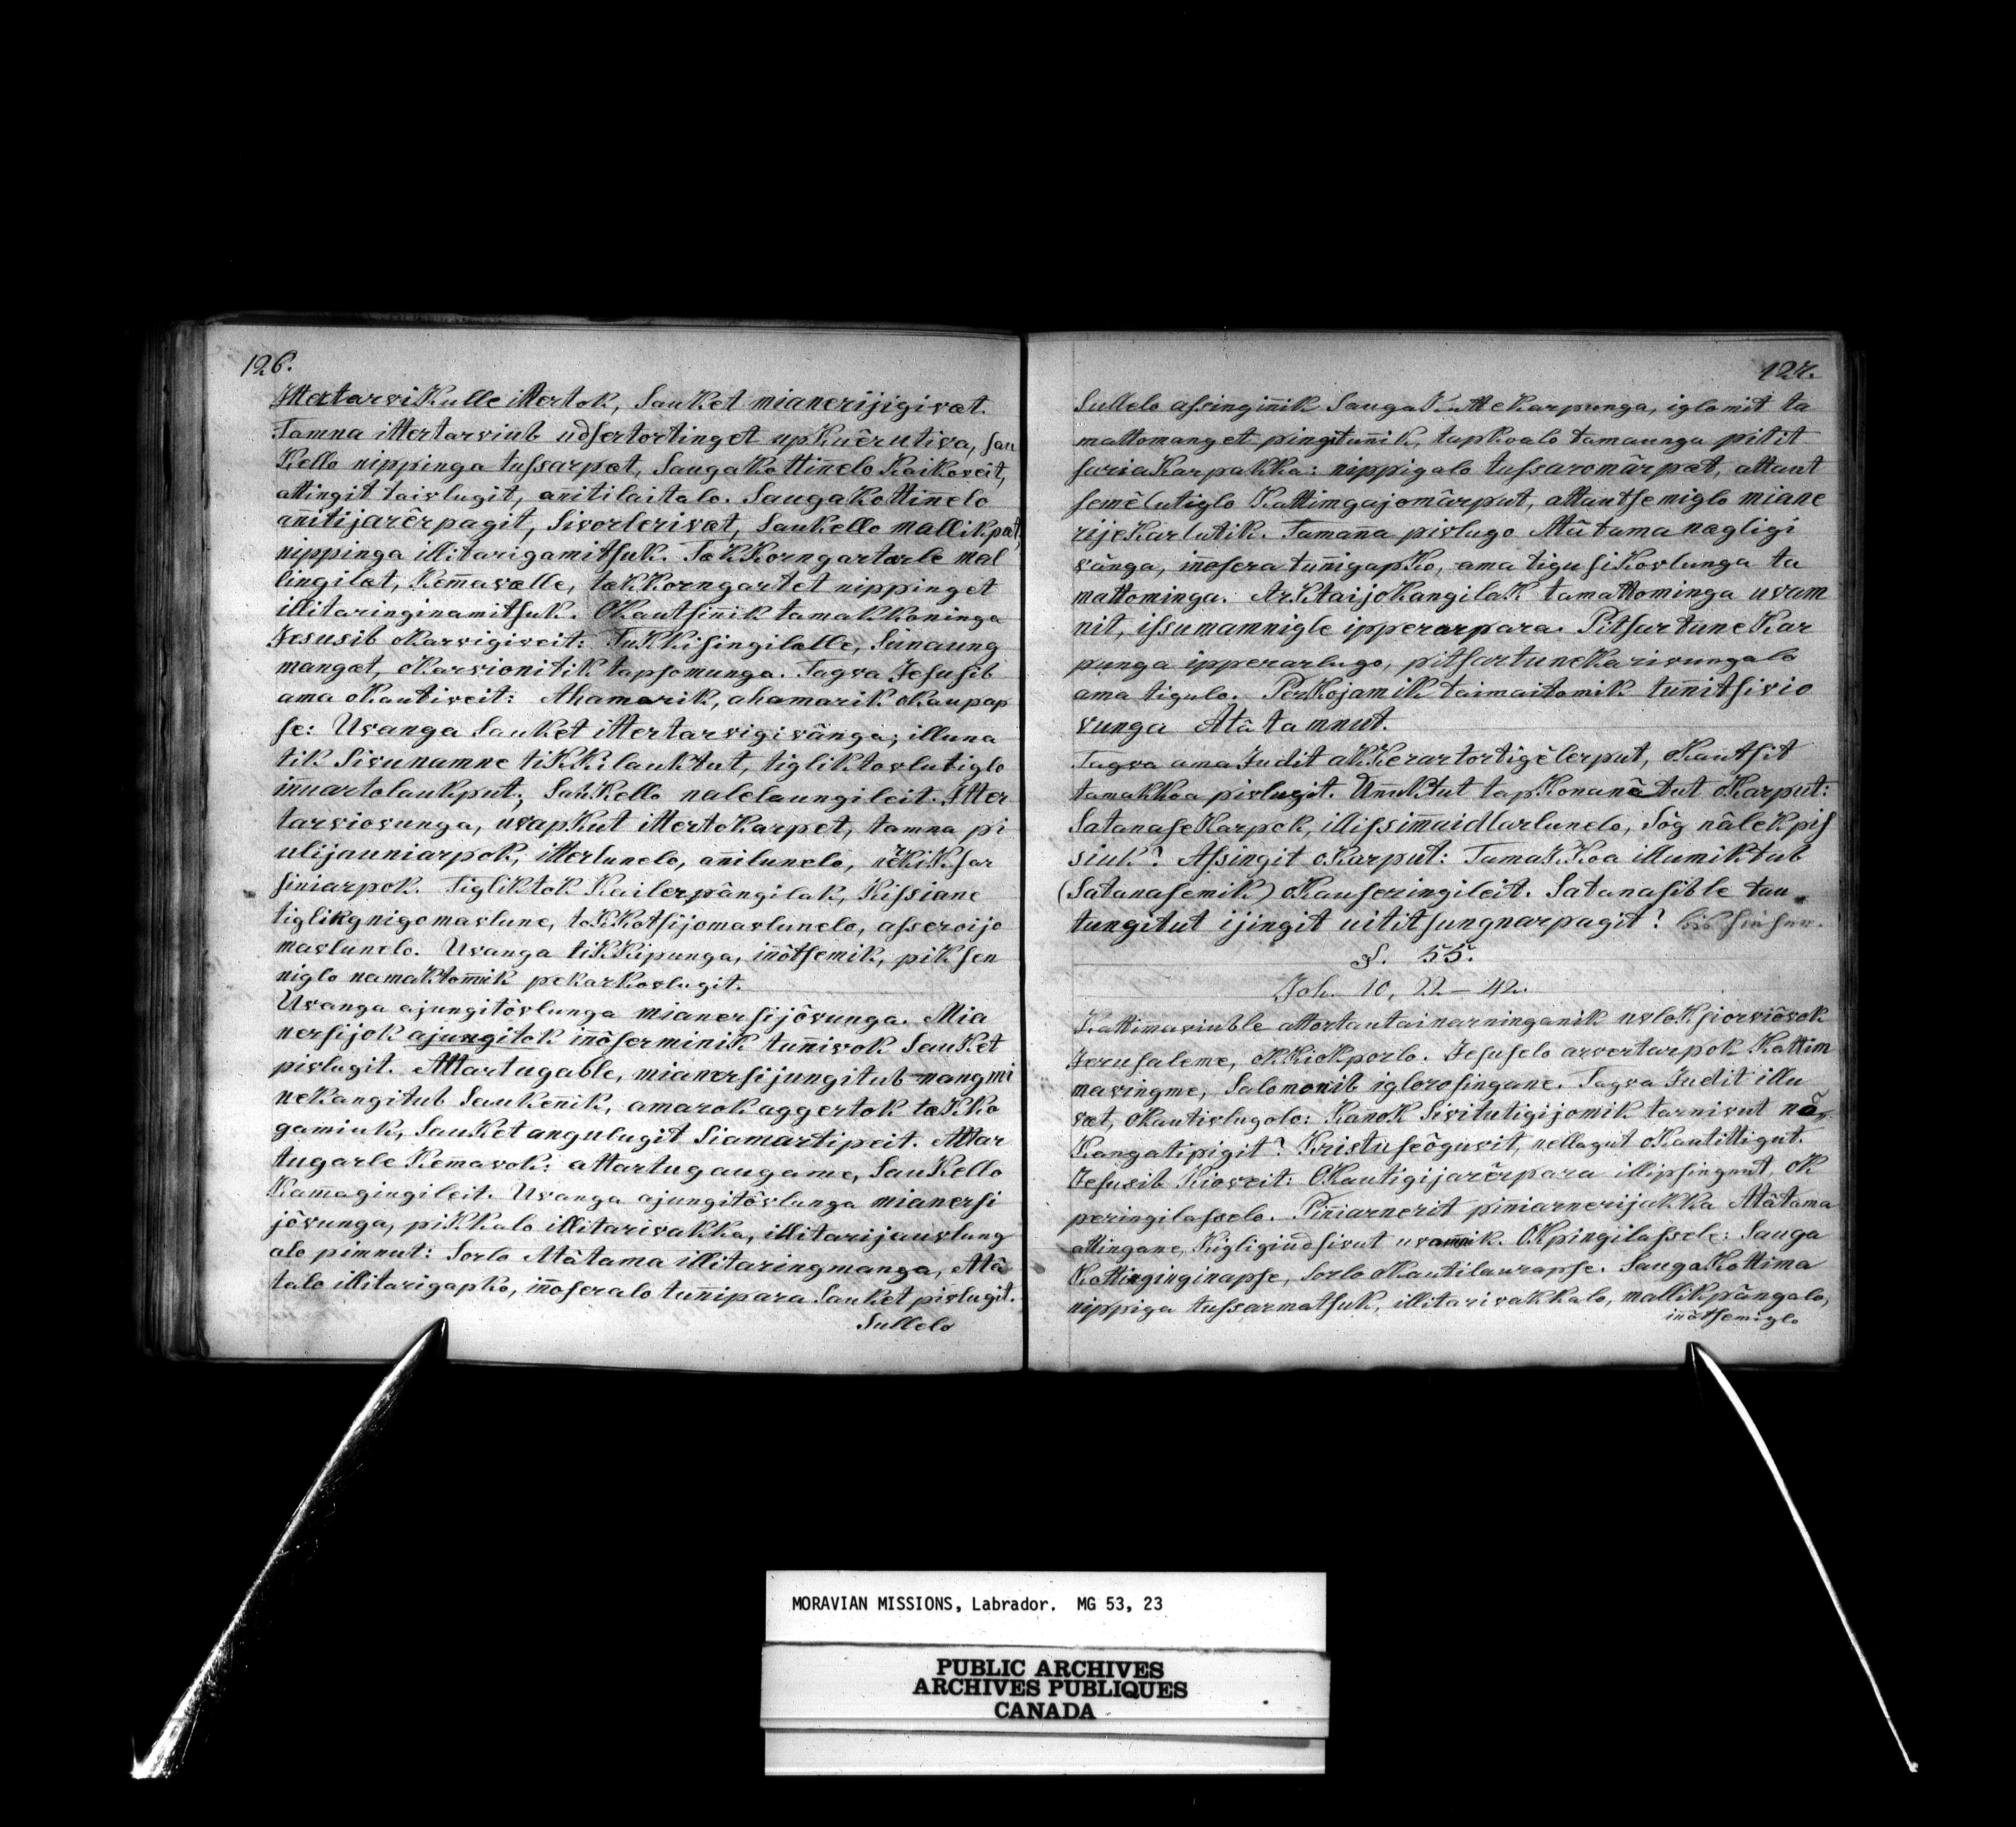 126.
IttertarviKulle ittertok, SauKet mianerijigivæt.
Tamna ittertarviub udsertortinget upKuêrutiva, sau
Kello nippinga tussarpæt, SaugaKottin̄elo Kaikoveit,
attingit taivlugit, an̄itilaitalo. SaugaKottin̄elo
an̄itijarêrpagit, Sivorlerivæt, SauKello mallikpæt,
nippinga illitarigamitsuk. TakKorngartorle mal
lingilæt, Kem̄avælle, takKorngartet nippinget
illitaringinamitsuk. OKautsin̄ik tamakkoninga
Jesusib oKarvigiveit: TuKKisingilælle, Sunaung
mangæt, oKarvionitik tapsomunga. Tagva Jesusib
ama oKautiveit: Ahamarik, ahamarik oKaupap
se: Uvanga SauKet ittertarvigivânga; illuna
tik Sivunamne tiKKilauktut, tigliktovlutiglo
in̄uartolaukput; SauKello nalelaungileit. Itter
tarviovunga, uvapKut ittertoKarpet, tamna pi
ulijauniarpok, itterlunelo, an̄ilunelo, nerKiKsar
siniarpok. Tigliktok Kailerpângilak, Kissiane
tiglikgnigomavlune, toKKotsijomavlunelo, asseroijo
mavlunelo. Uvanga tiKKipunga, in̄ôtsemik, piksen
niglo namaktom̄ik pekarKovlugit.
Uvanga ajungitôvlunga mianersijôvunga. Mia
nersijok ajungitok in̄ôserminik tun̄ivok SauKet
pivlugit. Attartugable, mianersijungitub nangmi
neKangitub SauKenik, amarok aggertok takko
gamiuk, SauKet angulugit Siamartipeit. Attar
tugarle Kem̄avok: attartugaugame, SauKello
Kam̄agingileit. Uvanga ajungitôvlunga mianersi
jôvunga, pikkalo illitarivakka, illitarijauvlung
alo pimnut: Sorlo Atâtama illitaringmanga, Atâ
talo illitarigapko, in̄oseralo tun̄ipara SauKet pivlugit.
Sullelo
127.
Sullelo assingin̄ik SaugaKutteKarpunga, iglomit ta
mattomanget pingitun̄ik, tapkoalo tamaunga pitit
sariaKarpakka: nippigalo tussaromârpæt, attaut
semêlutiglo Kattimgajomârput, attautsemiglo miane
rijeKarlutik. Taman̄a pivlugo Atâtama nægligi
vânga, in̄osera tun̄igapKo, ama tigusiKovlunga ta
mattominga. ArKtaijoKangilaK tamattominga uvam
nit, issumamnigle ipperarpara. PitsartuneKar
punga ipperarlugo, pitsartuneKarivungalo
ama tigulo. PerKojamik taimaitomik tun̄itsivio
vunga Atâtamnut.
Tagva ama Judit akKerartortigêlerput, oKautsit
tamakkoa pivlugit. Un̄uktut tapKonanêtut oKarput:
SatanaseKarpok, illissim̄aidlarlunelo, Sôg nâlekpis
siuk? Assingit oKarput: TamaKKoa illumiktub
(Satanasemik) oKauseringileit. Satanasible tau
tungitut ijingit uititsungnarpagit?
§. 55.
Joh. 10, 22–42.
Kattimaviuble attortautainarninganik uvloKpiorviôvok
Jerusaleme, oKKiokporlo. Jesuselo arvertarpok Kattim
mavingme, Salomonib iglorosingane. Tagva Judit illu
væt, oKautivlugolo: KanoK Sivitutigijomik tarnivut nâ
Kangatipigit? Kristuseôguvit, nellagut oKautittigut.
Jesusib Kioveit: OKautigijarêrpara illipsingnut, oK
peringilasselo. Pin̄iarnerit pin̄iarnerijakka Atâtama
attingane, Kigligiudsivut uvam̄nik. OKpingilassele: Sauga
Kottinginginapse, Sorlo oKautilaurapse. SaugaKottima
nippiga tussarmatsuk, illitarivakkalo, mallikpângalo,
in̄ôtsemiglo
MORAVIAN MISSIONS, Labrador. MG 53, 23
PUBLIC ARCHIVES
ARCHIVES PUBLIQUES
CANADA